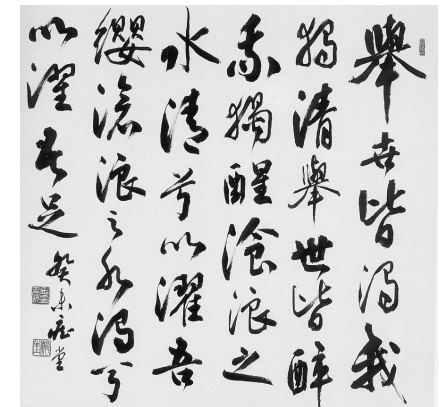 舉世皆濁我
獨清舉世皆醉
我獨醒滄浪之
水清兮以濯吾
纓滄浪之水濁兮
以濯吾足
癸未堂